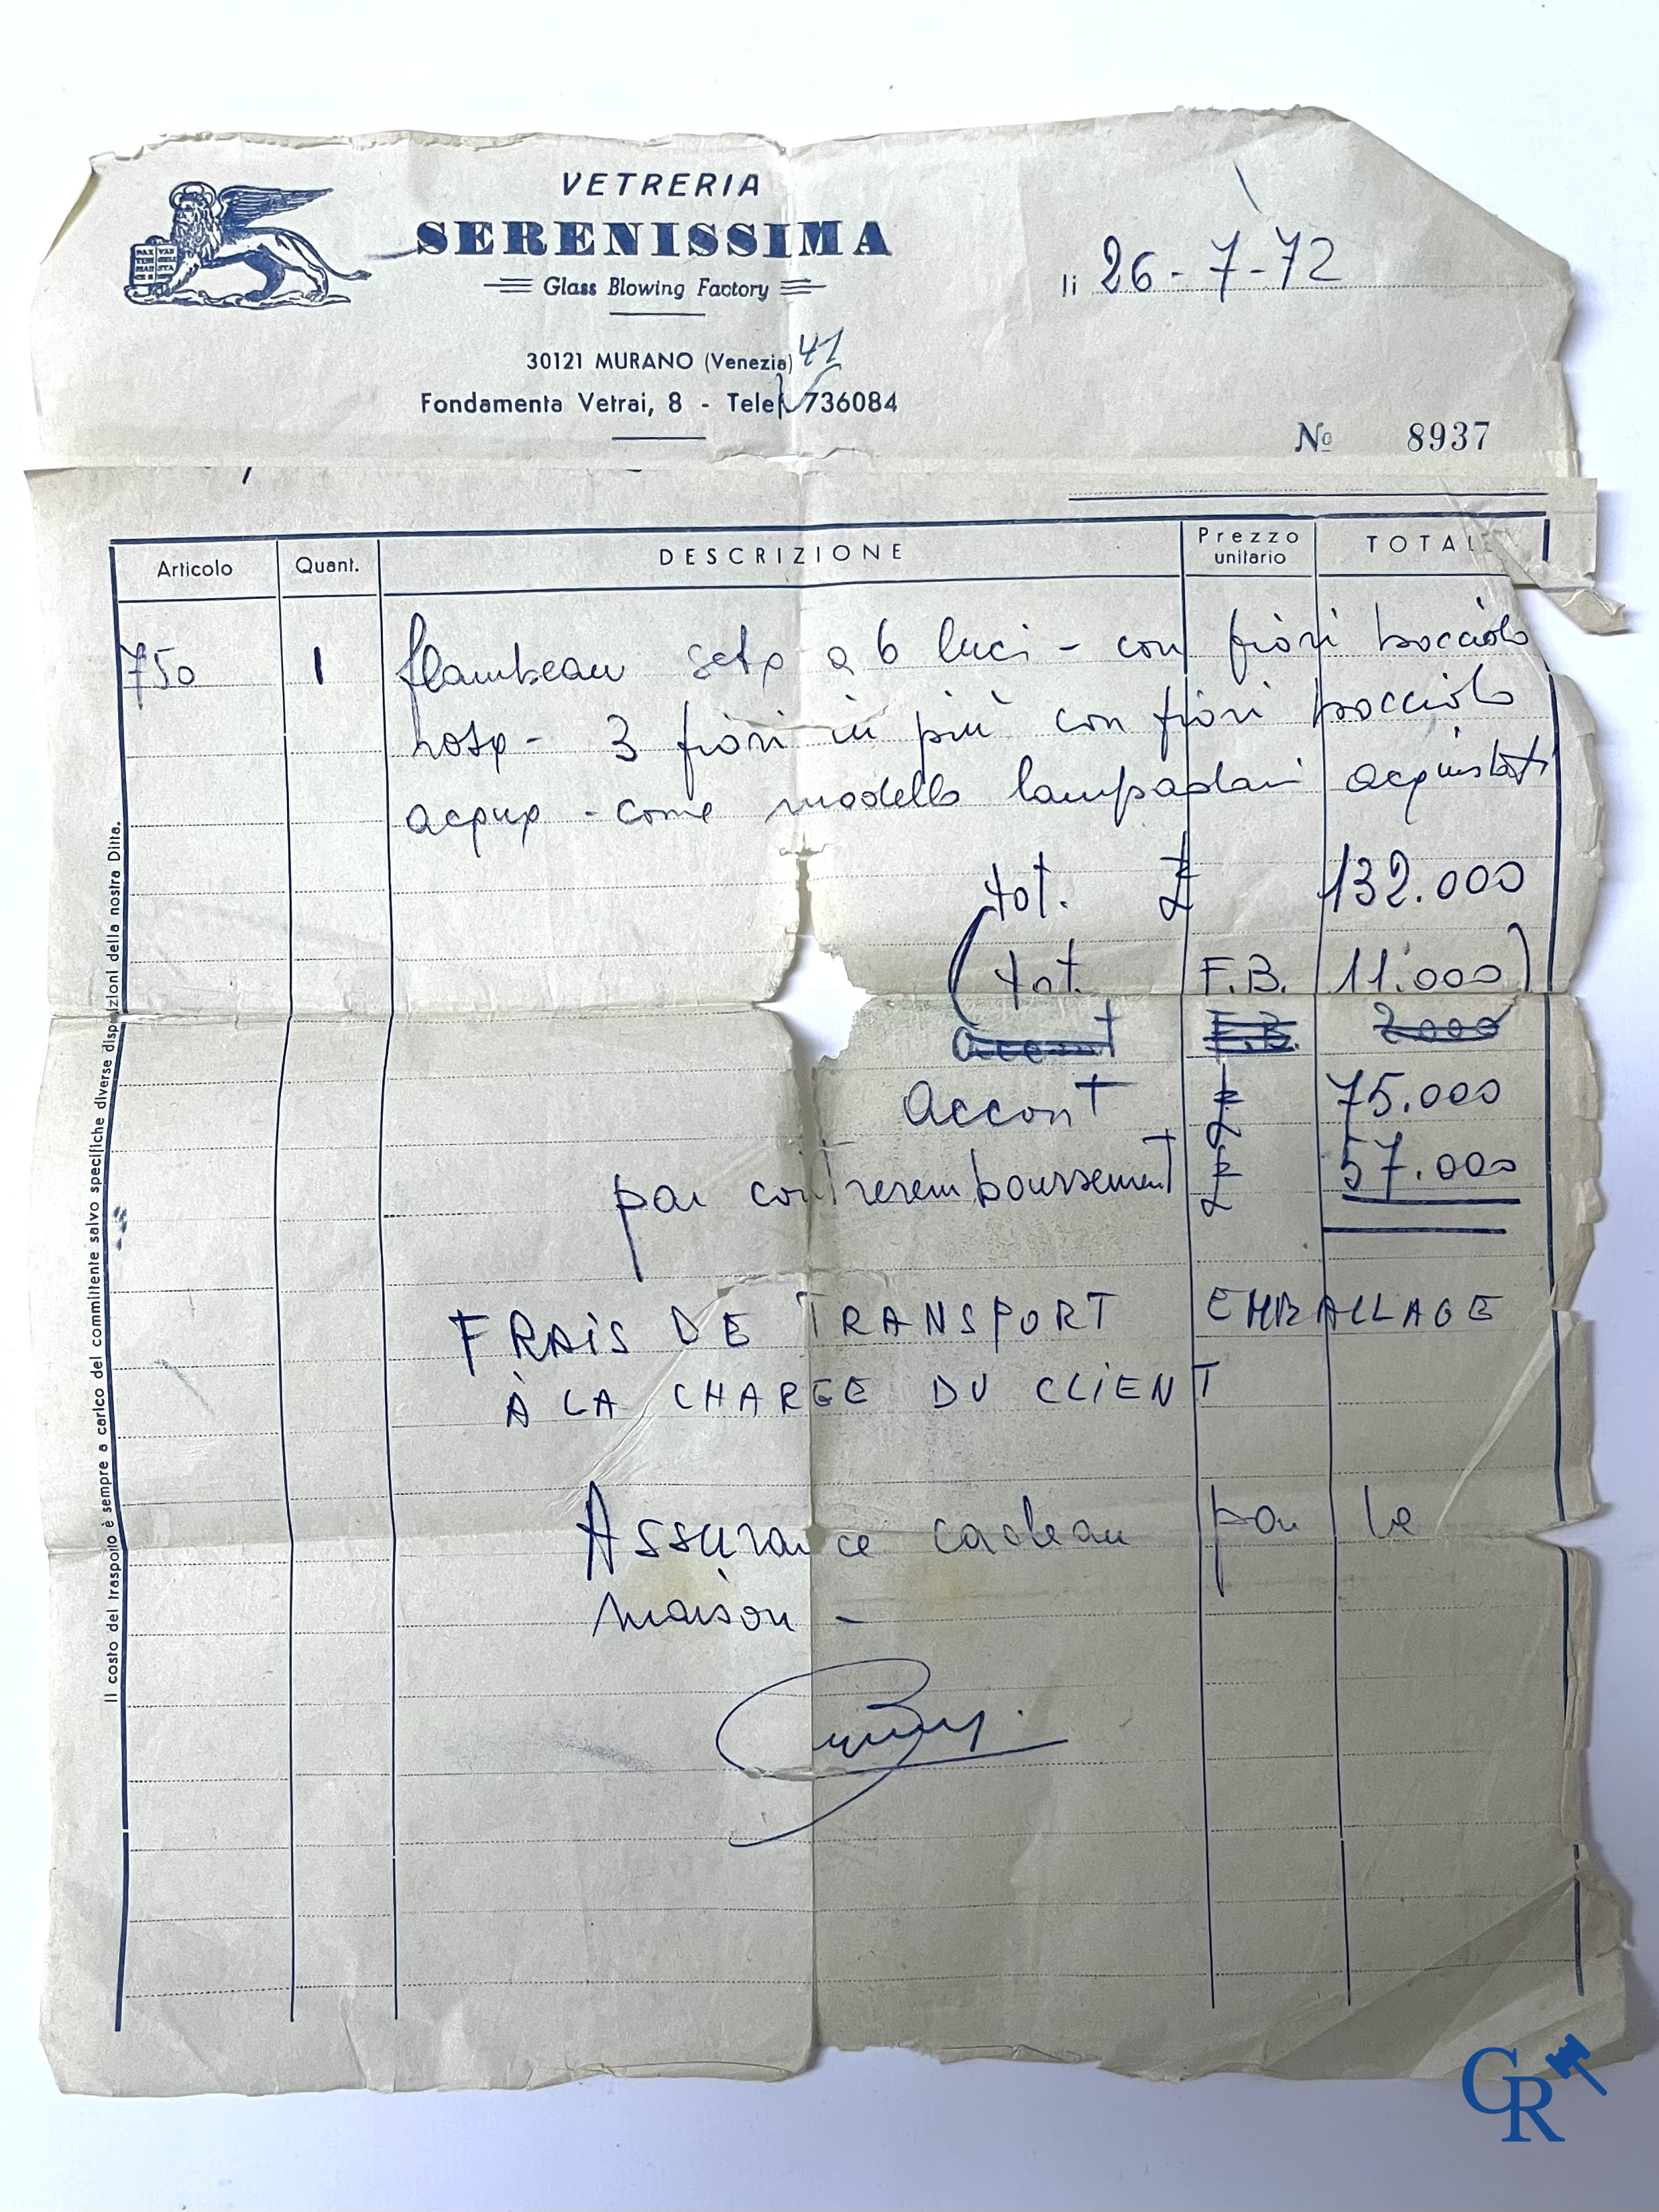 VETRERIA
SERENISSIMA
Glass Blowing Factory
PAX TIBI MAR
li 26-7-72
30121 MURANO (Venezia) 41
Fondamenta Vetrai, 8 - Telef. 736084
No 8937
Articolo Quant. DESCRIZIONE Prezzo unitario TOTALE
750 1 flambeau seta a 6 luci - con fiori bocciolo
rosa - 3 fiori in più con fiori bocciolo
acqua - come modello lampadari acquistati
tot. £ 132.000
(tot. F.B. 11.000)
accont F.B. 2.000
accont £ 75.000
par contreremboursement £ 57.000
FRAIS DE TRANSPORT EMBALLAGE
À LA CHARGE DU CLIENT
Assurance cadeau par la
maison -
Il costo del trasporto è sempre a carico del committente salvo specifiche diverse disposizioni della nostra Ditta.
CR